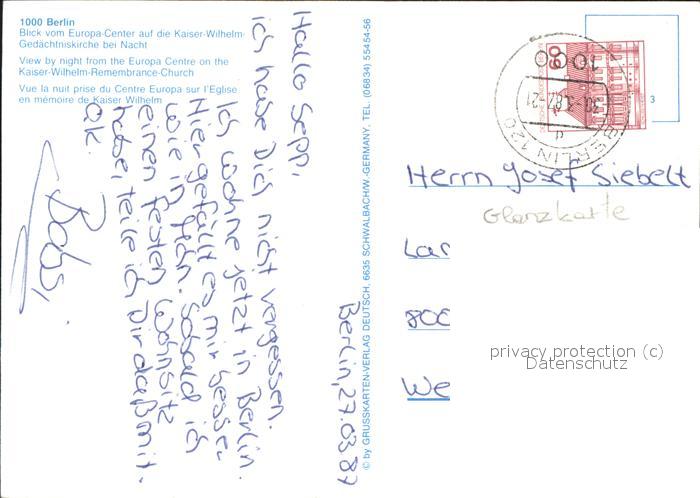 1000 Berlin
Blick vom Europa-Center auf die Kaiser-Wilhelm-
Gedächtniskirche bei Nacht
View by night from the Europa Centre on the
Kaiser-Wilhelm-Remembrance-Church
Vue la nuit prise du Centre Europa sur l'Eglise
en mémoire de Kaiser Wilhelm
Berlin, 27.03.87
Hallo Sepp,
ich habe Dich nicht vergessen.
Ich wohne jetzt in Berlin.
Hier gefällt es mir besser
wie in Sobald ich
einen festen Wohnsitz
habe, teile ich Dir daß mit.
Ok.
Babsi
© by GRUSSKARTEN-VERLAG DEUTSCH, 6635 SCHWALBACH/W.-GERMANY, TEL. (06834) 55454-56
60
DEUTSCHE BUNDESPOST BERLIN
1000
BERLIN 120
3
Herrn Josef Siebelt
Glanzkarte
Lar
800
We
privacy protection (c)
Datenschutz